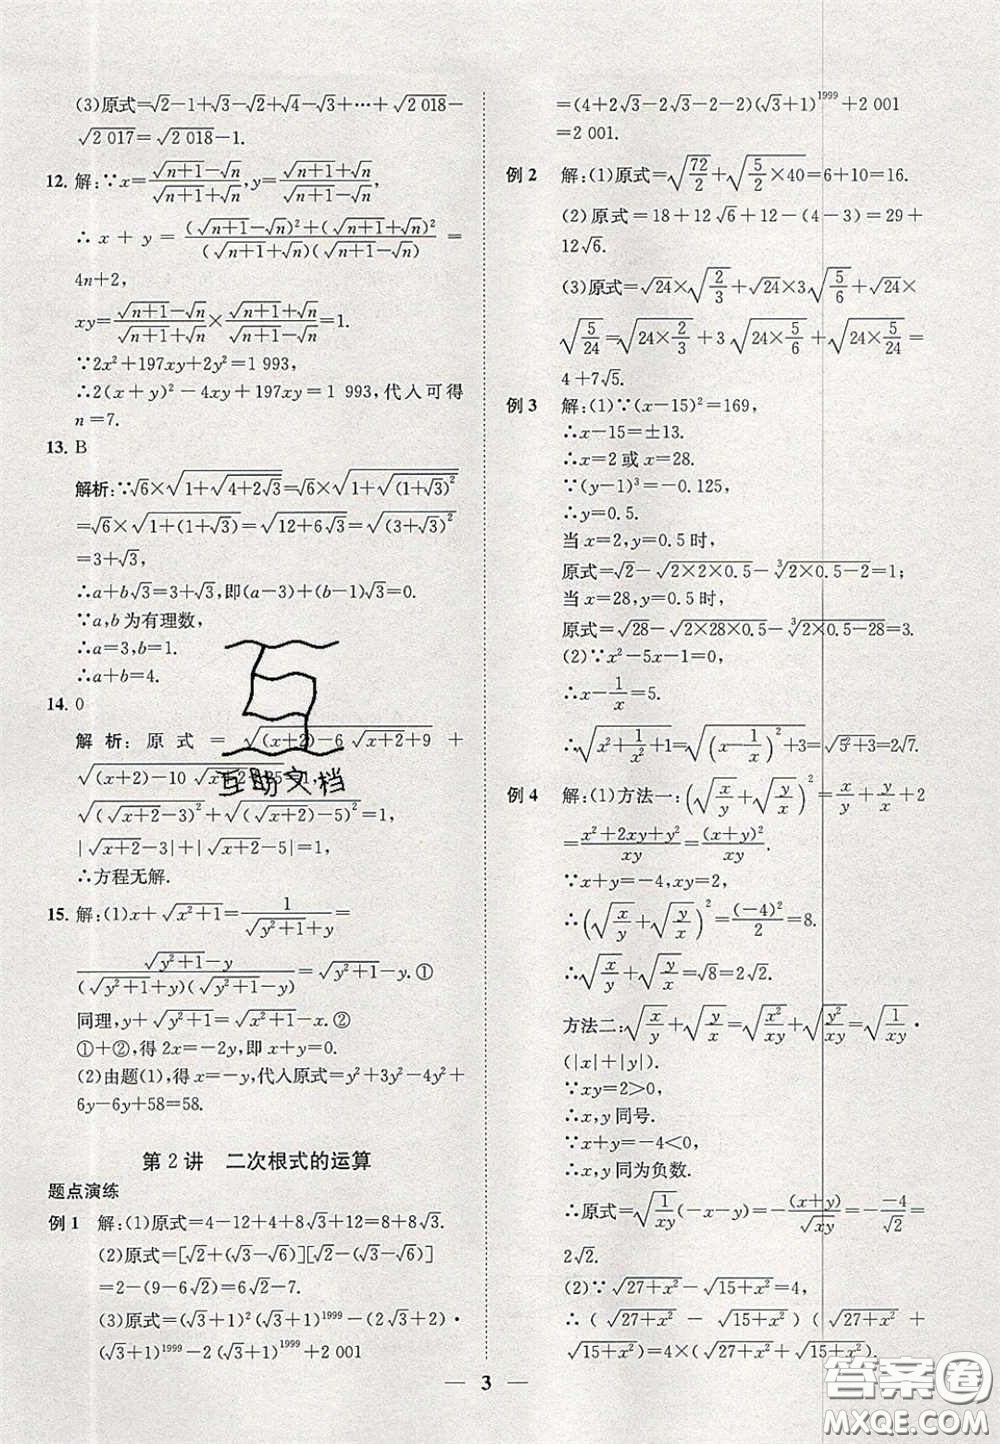 (3)原式=√2-1+√3-√2+√4-√3+…+√2 018-
√2 017=√2 018-1.
12. 解:∵x=(√(n+1)-√n)/(√(n+1)+√n),y=(√(n+1)+√n)/(√(n+1)-√n),
∴x+y=((√(n+1)-√n)²+(√(n+1)+√n)²)/((√(n+1)+√n)(√(n+1)-√n))=
4n+2,
xy=(√(n+1)-√n)/(√(n+1)+√n)×(√(n+1)+√n)/(√(n+1)-√n)=1.
∵2x²+197xy+2y²=1 993,
∴2(x+y)²-4xy+197xy=1 993,代入可得
n=7.
13. B
解析:∵√6×√(1+√(4+2√3))=√6×√(1+√((1+√3)²))
=√6×√(1+(1+√3))=√(12+6√3)=√((3+√3)²)
=3+√3,
∴a+b√3=3+√3,即(a-3)+(b-1)√3=0.
∵a,b为有理数,
∴a=3,b=1.
∴a+b=4.
14. 0
解析:原式=√((x+2)-6√(x+2)+9)+
√((x+2)-10√(x+2)+25)=1,
√((√(x+2)-3)²)+√((√(x+2)-5)²)=1,
|√(x+2)-3|+|√(x+2)-5|=1,
∴方程无解.
15. 解:(1)x+√(x²+1)=1/(√(y²+1)+y)=
(√(y²+1)-y)/((√(y²+1)+y)(√(y²+1)-y))=√(y²+1)-y.①
同理,y+√(y²+1)=√(x²+1)-x.②
①+②,得2x=-2y,即x+y=0.
(2)由题(1),得x=-y,代入原式=y²+3y²-4y²+
6y-6y+58=58.
第2讲 二次根式的运算
题点演练
例1 解:(1)原式=4-12+4+8√3+12=8+8√3.
(2)原式=[√2+(√3-√6)][√2-(√3-√6)]
=2-(9-6√2)=6√2-7.
(3)原式=(√3+1)²(√3+1)¹⁹⁹⁹-2(√3+1)·
(√3+1)¹⁹⁹⁹-2(√3+1)¹⁹⁹⁹+2 001
=(4+2√3-2√3-2-2)(√3+1)¹⁹⁹⁹+2 001
=2 001.
例2 解:(1)原式=√(72/2)+√(5/2×40)=6+10=16.
(2)原式=18+12√6+12-(4-3)=29+
12√6.
(3)原式=√24×√(2/3)+√24×3√(5/6)+√24×
√(5/24)=√(24×2/3)+3√(24×5/6)+√(24×5/24)=
4+7√5.
例3 解:(1)∵(x-15)²=169,
∴x-15=±13.
∴x=2或x=28.
∵(y-1)³=-0.125,
∴y=0.5.
当x=2,y=0.5时,
原式=√2-√(2×2×0.5)-∛(2×0.5-2)=1;
当x=28,y=0.5时,
原式=√28-√(2×28×0.5)-∛(2×0.5-28)=3.
(2)∵x²-5x-1=0,
∴x-1/x=5.
∴√(x²+1/x²+1)=√((x-1/x)²+3)=√(5²+3)=2√7.
例4 解:(1)方法一:(√(x/y)+√(y/x))²=x/y+y/x+2
=(x²+2xy+y²)/xy=(x+y)²/xy.
∵x+y=-4,xy=2,
∴(√(x/y)+√(y/x))²=(-4)²/2=8.
∴√(x/y)+√(y/x)=√8=2√2.
方法二:√(x/y)+√(y/x)=√(x²/xy)+√(y²/xy)=√(1/xy)·
(|x|+|y|).
∵xy=2>0,
∴x,y同号.
∵x+y=-4<0,
∴x,y同为负数.
∴原式=√(1/xy)(-x-y)=-(x+y)/√xy=-(-4)/√2=
2√2.
(2)∵√(27+x²)-√(15+x²)=4,
∴(√(27+x²)-√(15+x²))(√(27+x²)+
√(15+x²))=4×(√(27+x²)+√(15+x²))=
3
互助文档
答案圈
MXQE.COM